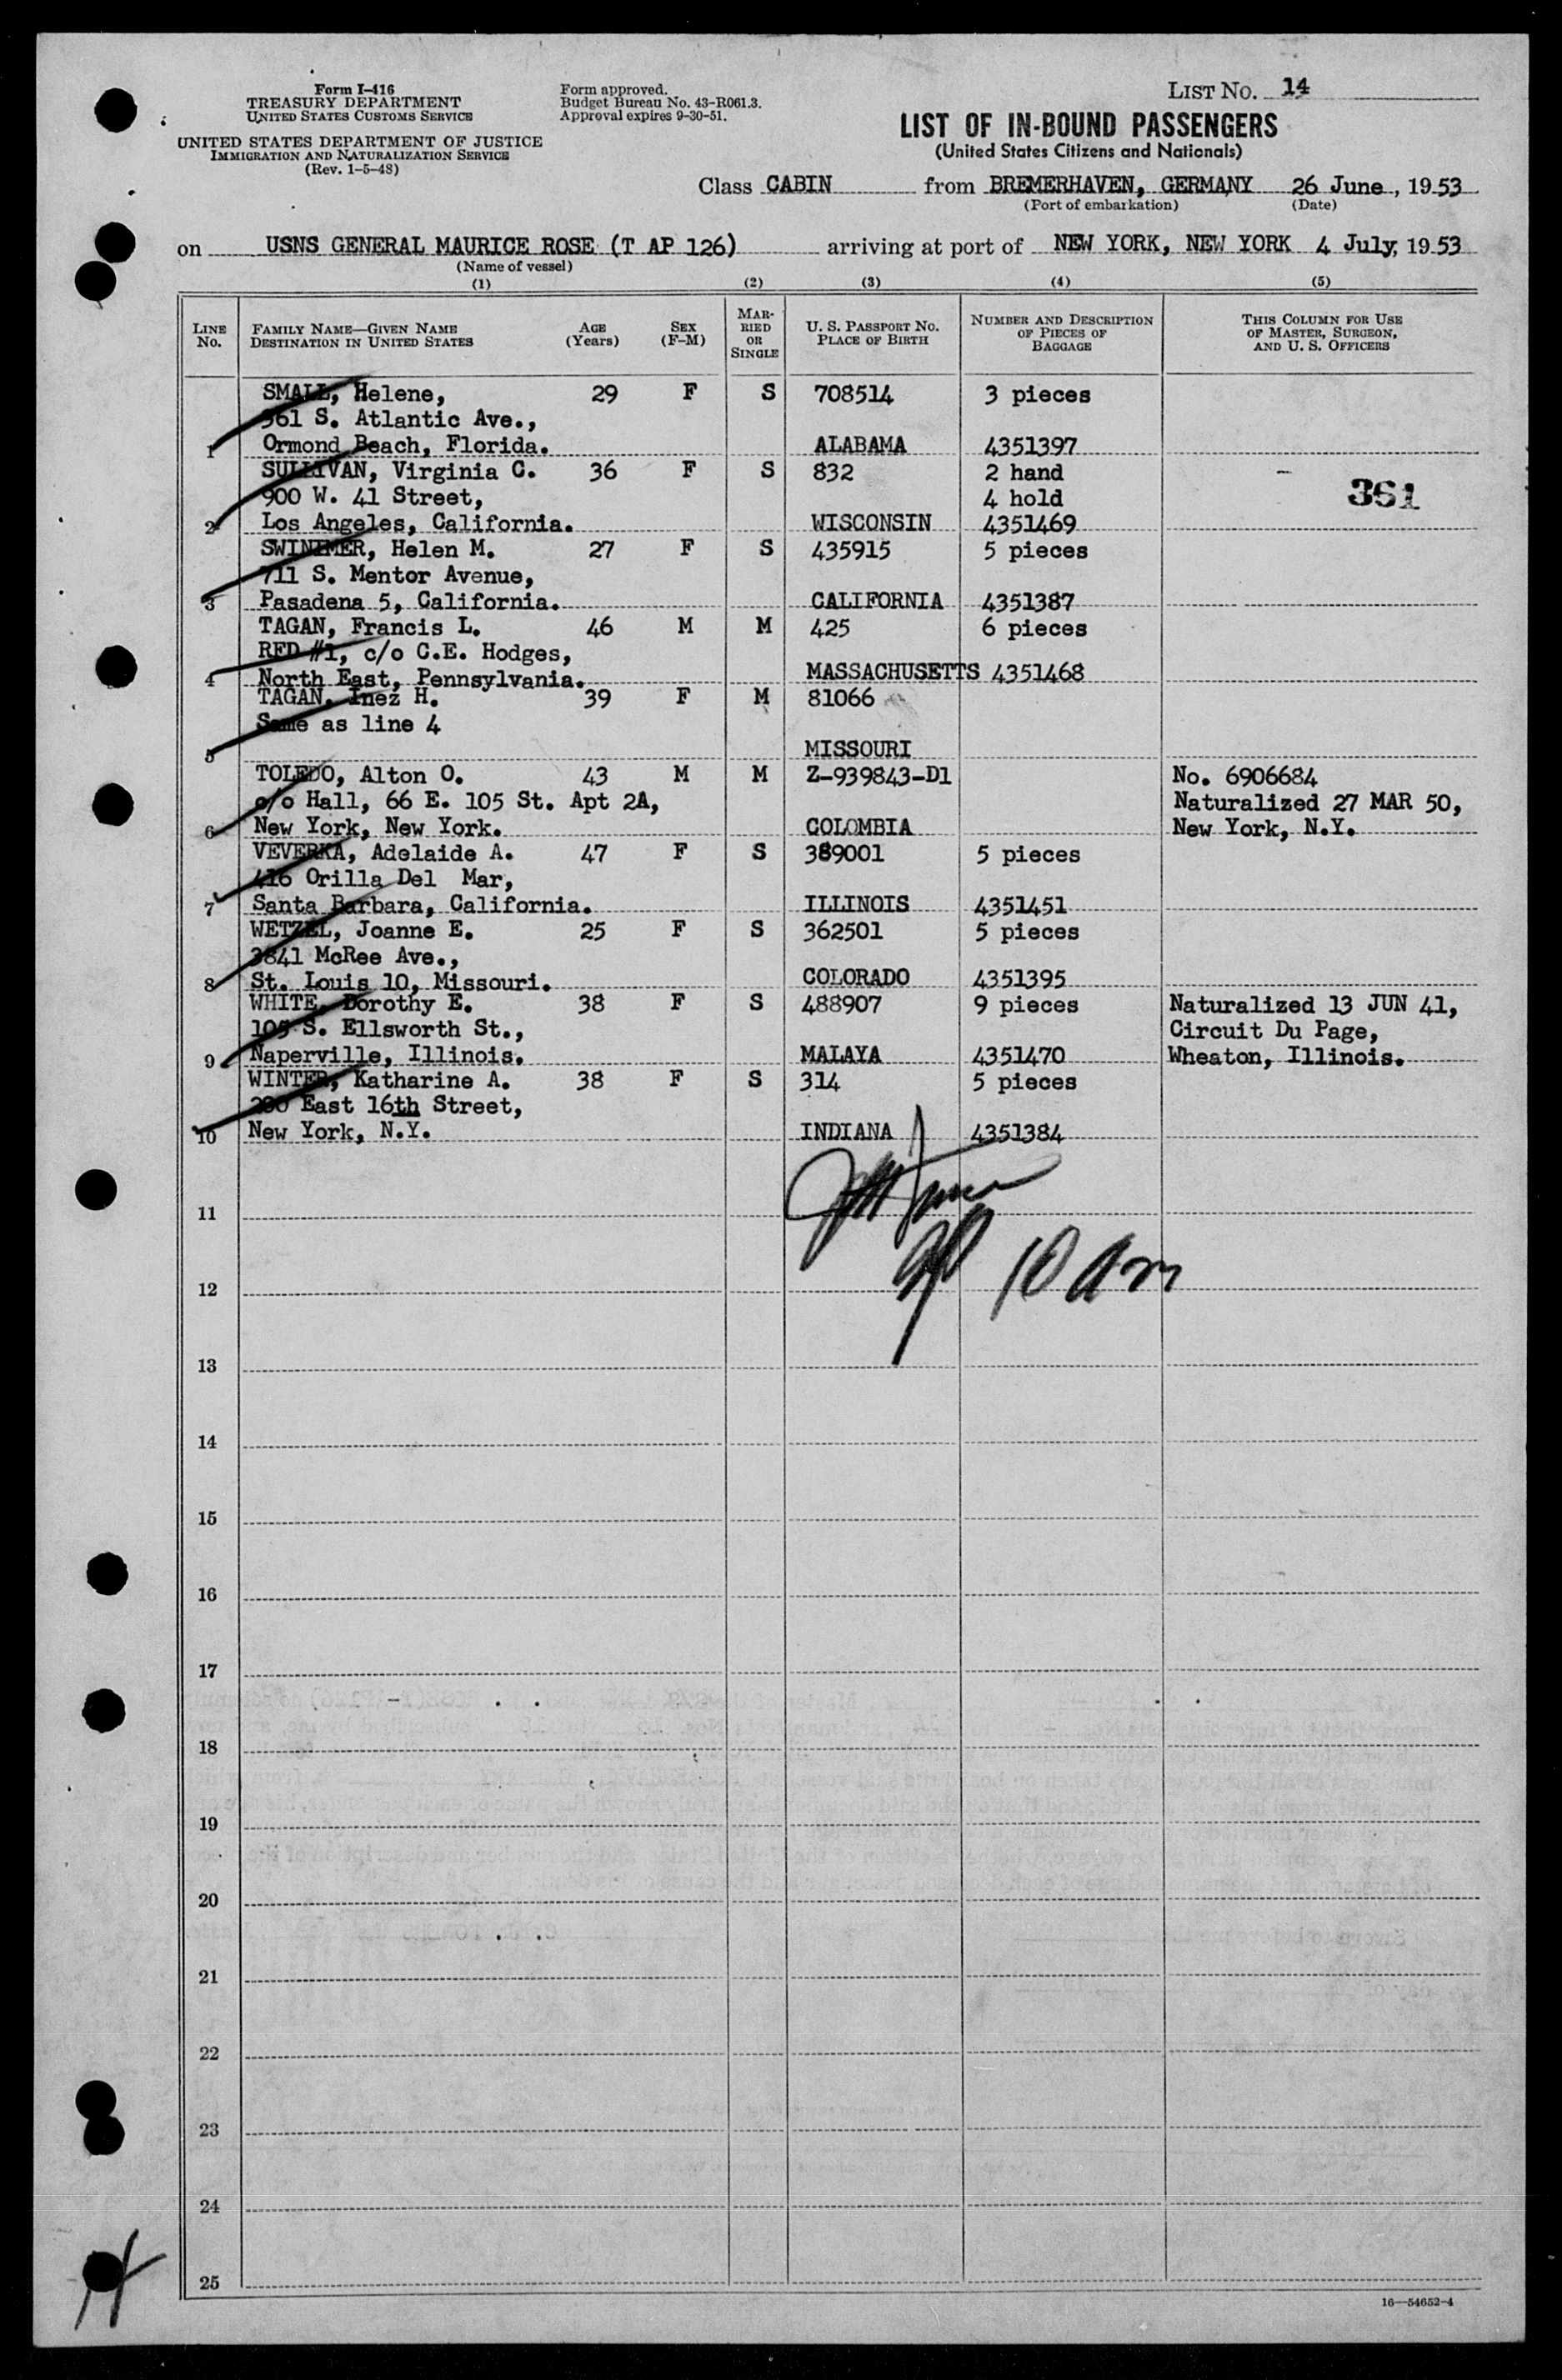 Form I-416
TREASURY DEPARTMENT
UNITED STATES CUSTOMS SERVICE
UNITED STATES DEPARTMENT OF JUSTICE
IMMIGRATION AND NATURALIZATION SERVICE
(Rev. 1-5-48)
Form approved.
Budget Bureau No. 43-R061.3.
Approval expires 9-30-51.
LIST No. 14
LIST OF IN-BOUND PASSENGERS
(United States Citizens and Nationals)
Class CABIN from BREMERHAVEN, GERMANY 26 June, 1953
(Port of embarkation) (Date)
on USNS GENERAL MAURICE ROSE (T AP 126) arriving at port of NEW YORK, NEW YORK 4 July, 1953
(Name of vessel)
(1) (2) (3) (4) (5)
LINE No. FAMILY NAME—GIVEN NAME DESTINATION IN UNITED STATES AGE (Years) SEX (F-M) MARRIED OR SINGLE U. S. PASSPORT No. PLACE OF BIRTH NUMBER AND DESCRIPTION OF PIECES OF BAGGAGE THIS COLUMN FOR USE OF MASTER, SURGEON, AND U. S. OFFICERS
SMALL, Helene, 29 F S 708514 3 pieces
361 S. Atlantic Ave.,
1 Ormond Beach, Florida. ALABAMA 4351397
SULLIVAN, Virginia C. 36 F S 832 2 hand
900 W. 41 Street, 4 hold 361
2 Los Angeles, California. WISCONSIN 4351469
SWINEMER, Helen M. 27 F S 435915 5 pieces
711 S. Mentor Avenue,
3 Pasadena 5, California. CALIFORNIA 4351387
TAGAN, Francis L. 46 M M 425 6 pieces
RFD #1, c/o C.E. Hodges,
4 North East, Pennsylvania. MASSACHUSETTS 4351468
TAGAN, Inez H. 39 F M 81066
Same as line 4
5 MISSOURI
TOLEDO, Alton O. 43 M M Z-939843-D1 No. 6906684
c/o Hall, 66 E. 105 St. Apt 2A, Naturalized 27 MAR 50,
6 New York, New York. COLOMBIA New York, N.Y.
VEVERKA, Adelaide A. 47 F S 389001 5 pieces
416 Orilla Del Mar,
7 Santa Barbara, California. ILLINOIS 4351451
WETZEL, Joanne E. 25 F S 362501 5 pieces
3841 McRee Ave.,
8 St. Louis 10, Missouri. COLORADO 4351395
WHITE, Dorothy E. 38 F S 488907 9 pieces Naturalized 13 JUN 41,
105 S. Ellsworth St., Circuit Du Page,
9 Naperville, Illinois. MALAYA 4351470 Wheaton, Illinois.
WINTER, Katharine A. 38 F S 314 5 pieces
East 16th Street,
10 New York, N.Y. INDIANA 4351384
11
10 am
12
13
14
15
16
17
18
19
20
21
22
23
24
25
14
16—54652-4